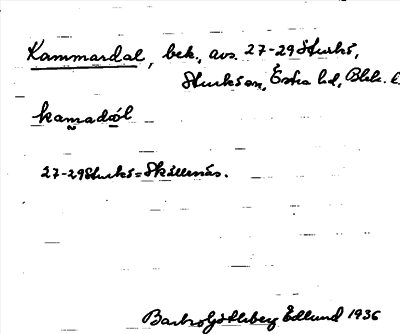 Kammardal, bek., avs. 27-29 Sturkö,
Sturkö sn, Östra hd, Blek. l.
kamadál
27-29 Sturkö = Skällenäs.
Barbro Götlberg Edlund 1936